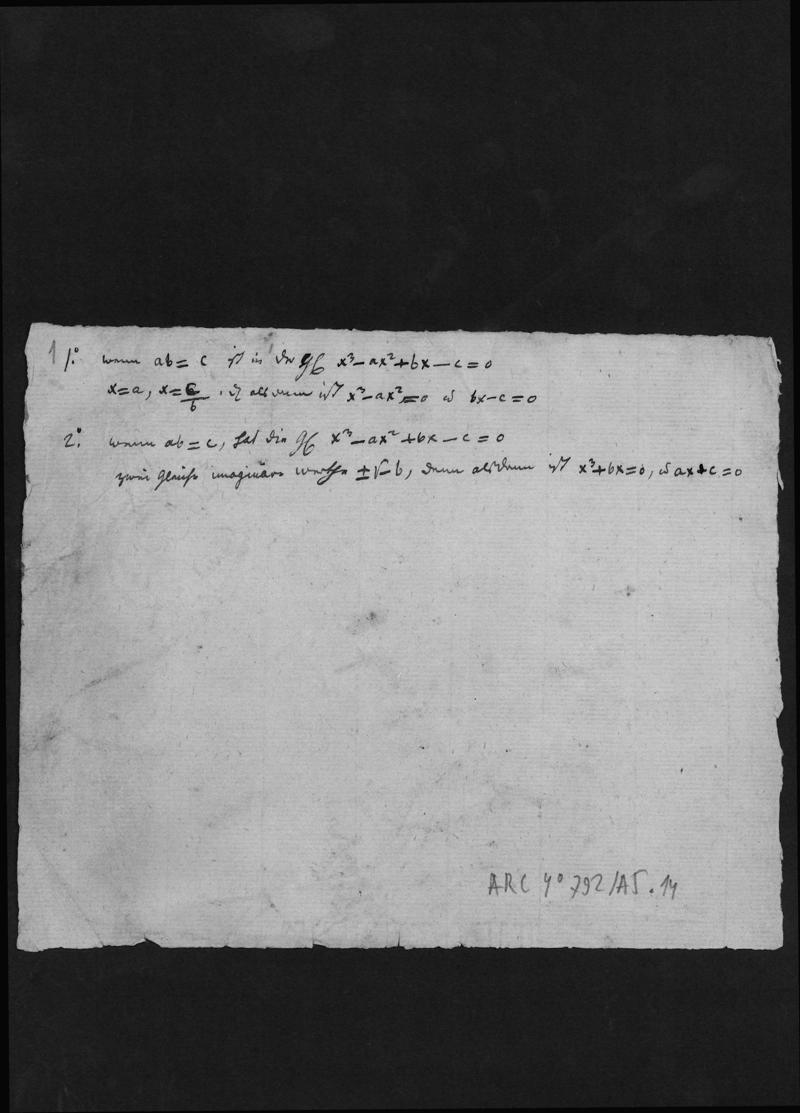 1 1º. wenn ab = c ist in der x³ − ax² + bx − c = 0
x = a, x = c/b, alsdenn ist x³ − ax² = 0 bx − c = 0
2º. wenn ab = c, hat die x³ − ax² + bx − c = 0
zwei gleiche imaginäre werthe ± √− b, denn alsdenn ist x³ + bx = 0, ax + c = 0
ARC 4º 792/A5.14